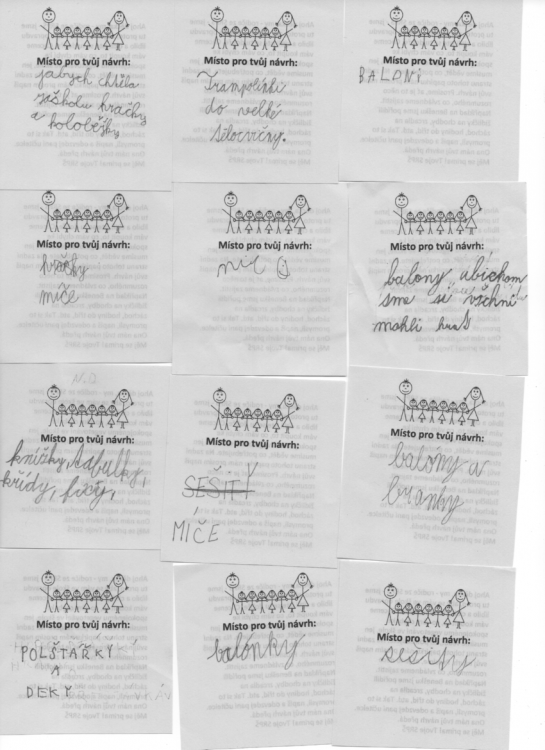 Místo pro tvůj návrh:
jabych chtěla
začkolu hračky
a koloběžky
Místo pro tvůj návrh:
Trampolínki
do velké
tělocvičny.
Místo pro tvůj návrh:
BALONI
Místo pro tvůj návrh:
hračky
míče
Místo pro tvůj návrh:
míč
Místo pro tvůj návrh:
balony abichom
sme se všichni
mohli hrat
N.O
Místo pro tvůj návrh:
knížky, tabulky,
křídy, fixy,
Místo pro tvůj návrh:
SEŠITY
MÍČE
Místo pro tvůj návrh:
balóny a
branky
Místo pro tvůj návrh:
POLŠTAŘKY
A
DEKY
Místo pro tvůj návrh:
balónky
Místo pro tvůj návrh:
sešity